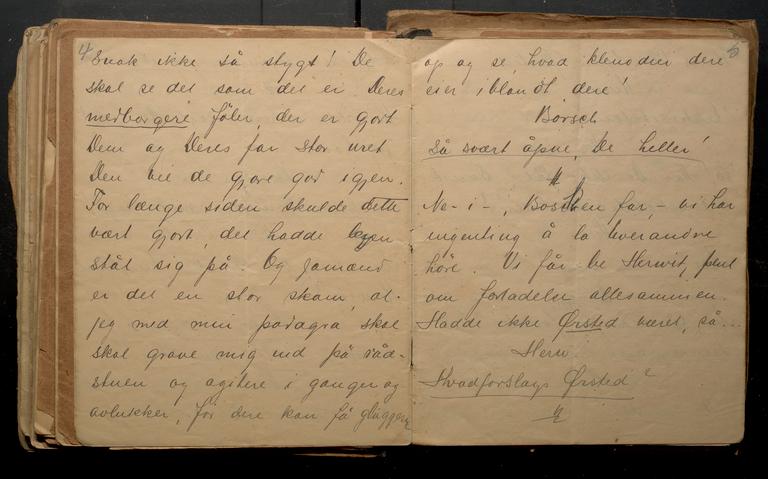 4
Snak ikke så stygt! De
skal se det som det er. Deres
medborgere føler, der er gjort
Dem og Deres far stor uret
Den vil de gjøre god igjen.
For længe siden skulde dette
vært gjort, det hadde byen
stål sig på. Og jamænd
er det en stor skam, at
jeg med min podagra skal
skal grave mig ned på råd-
stuen og agitere i ganger og
avlukker, før dere kan få gluggene
5
op og se, hvad klenodier dere
eier iblandt dere!
Børsch
Så svært åpne, De heller!
Ne-i-, Bossen far,- vi har
ingenting å la hverandre
høre. Vi får be Herwit pent
om forladelse allesammen.
Hadde ikke Ørsted været, så...
Herw.
Hvadforslags Ørsted?